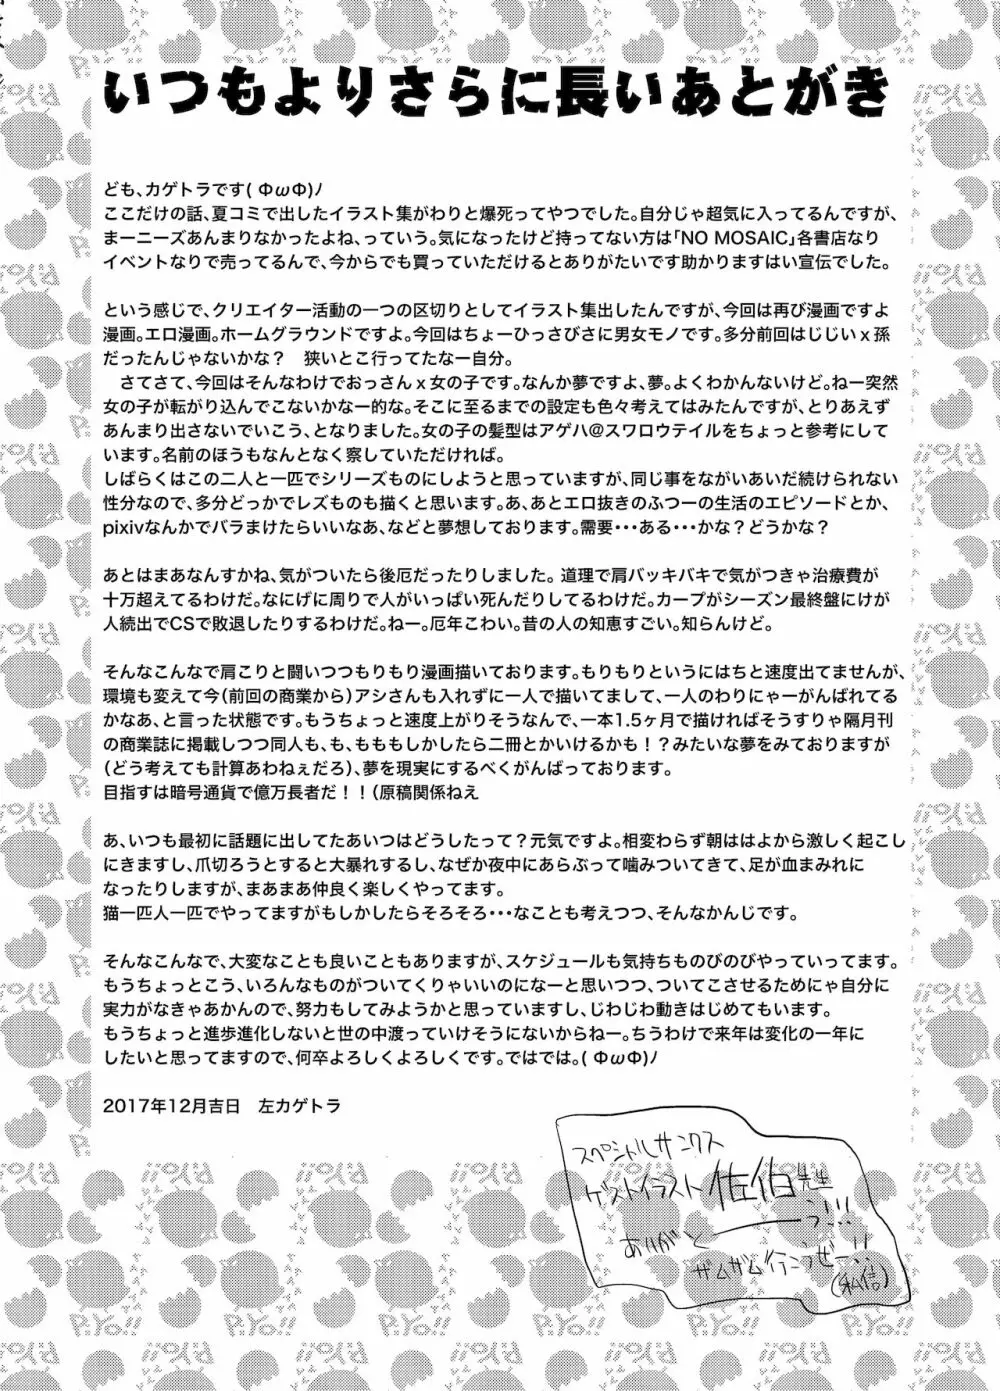 いつもよりさらに長いあとがき
ども、カゲトラです( ΦωΦ)ﾉ
ここだけの話、夏コミで出したイラスト集がわりと爆死ってやつでした。自分じゃ超気に入ってるんですが、
まーニーズあんまりなかったよね、っていう。気になったけど持ってない方は「NO MOSAIC」各書店なり
イベントなりで売ってるんで、今からでも買っていただけるとありがたいです助かりますはい宣伝でした。
という感じで、クリエイター活動の一つの区切りとしてイラスト集出したんですが、今回は再び漫画ですよ
漫画。エロ漫画。ホームグラウンドですよ。今回はちょーひっさびさに男女モノです。多分前回はじじいｘ孫
だったんじゃないかな？　狭いとこ行ってたなー自分。
　さてさて、今回はそんなわけでおっさんｘ女の子です。なんか夢ですよ、夢。よくわかんないけど。ねー突然
女の子が転がり込んでこないかなー的な。そこに至るまでの設定も色々考えてはみたんですが、とりあえず
あんまり出さないでいこう、となりました。女の子の髪型はアゲハ@スワロウテイルをちょっと参考にして
います。名前のほうもなんとなく察していただければ。
しばらくはこの二人と一匹でシリーズものにしようと思っていますが、同じ事をながいあいだ続けられない
性分なので、多分どっかでレズものも描くと思います。あ、あとエロ抜きのふつーの生活のエピソードとか、
pixivなんかでバラまけたらいいなあ、などと夢想しております。需要・・・ある・・・かな？どうかな？
あとはまあなんすかね、気がついたら後厄だったりしました。 道理で肩バッキバキで気がつきゃ治療費が
十万超えてるわけだ。なにげに周りで人がいっぱい死んだりしてるわけだ。カープがシーズン最終盤にけが
人続出でCSで敗退したりするわけだ。ねー。厄年こわい。昔の人の知恵すごい。知らんけど。
そんなこんなで肩こりと闘いつつもりもり漫画描いております。もりもりというにはちと速度出てませんが、
環境も変えて今(前回の商業から)アシさんも入れずに一人で描いてまして、一人のわりにゃーがんばれてる
かなあ、と言った状態です。もうちょっと速度上がりそうなんで、一本1.5ヶ月で描ければそうすりゃ隔月刊
の商業誌に掲載しつつ同人も、も、もももしかしたら二冊とかいけるかも！？みたいな夢をみておりますが
(どう考えても計算あわねぇだろ)、夢を現実にするべくがんばっております。
目指すは暗号通貨で億万長者だ！！(原稿関係ねえ
あ、いつも最初に話題に出してたあいつはどうしたって？元気ですよ。相変わらず朝ははよから激しく起こし
にきますし、爪切ろうとすると大暴れするし、なぜか夜中にあらぶって噛みついてきて、足が血まみれに
なったりしますが、まあまあ仲良く楽しくやってます。
猫一匹人一匹でやってますがもしかしたらそろそろ・・・なことも考えつつ、そんなかんじです。
そんなこんなで、大変なことも良いこともありますが、スケジュールも気持ちものびのびやっていってます。
もうちょっとこう、いろんなものがついてくりゃいいのになーと思いつつ、ついてこさせるためにゃ自分に
実力がなきゃあかんので、努力もしてみようかと思っていますし、じわじわ動きはじめてもいます。
もうちょっと進歩進化しないと世の中渡っていけそうにないからねー。ちうわけで来年は変化の一年に
したいと思ってますので、何卒よろしくよろしくです。ではでは。( ΦωΦ)ﾉ
2017年12月吉日　左カゲトラ
スペシャルサンクス
ゲストイラスト 佐伯先生
ありがとーーーう!!!
ザムザム行こうぜー!!
(私信)
PiYo!!